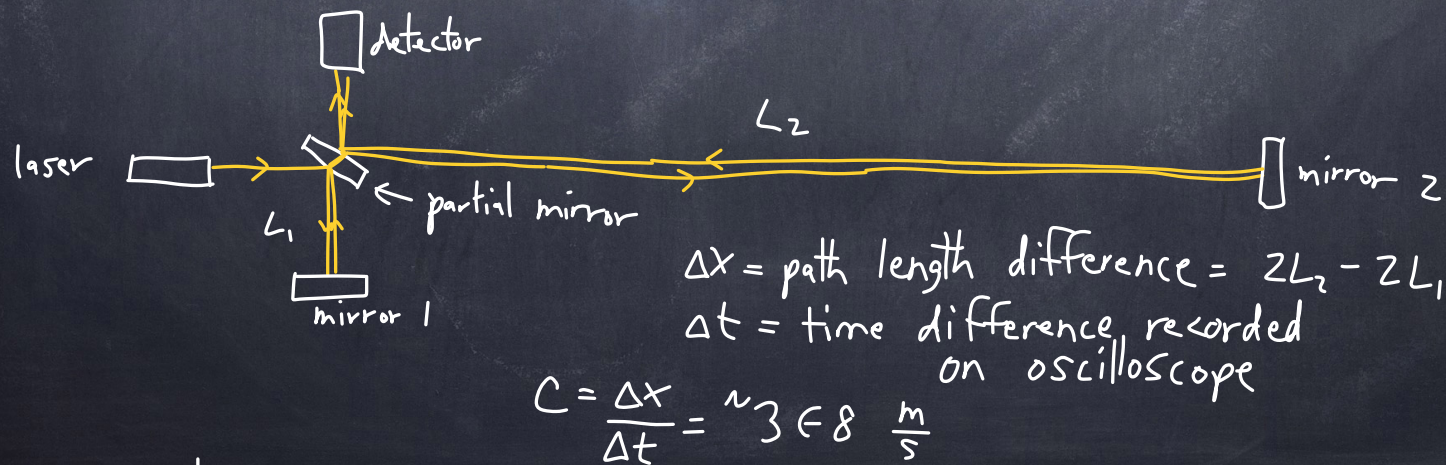 detector
L₂
laser
mirror 2
← partial mirror
L₁
mirror 1
Δx = path length difference = 2L₂ - 2L₁
Δt = time difference recorded
on oscilloscope
C = Δx/Δt = ~3E8 m/s